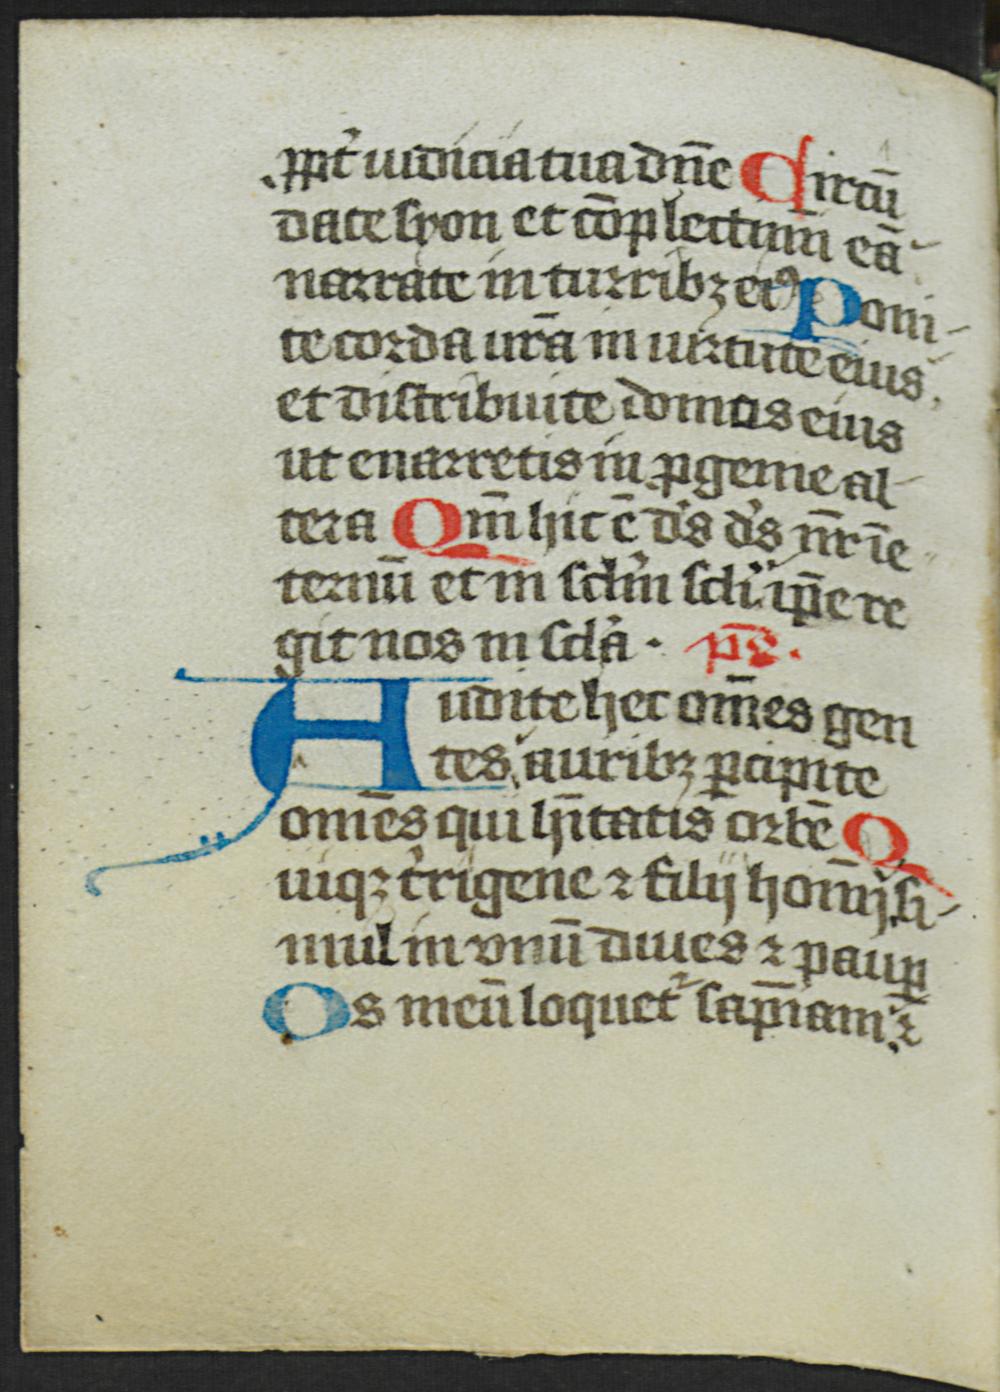 ꝓpt̾ iudicia tua dn̄e Circū
date syon et cōplectimī eā
narrate in turribꝫ eiꝰ Poni
te corda ur̄a in uirtute eius
et distribuite domos eius
ut enarretis in ꝓgenie al
tera Qm̄ hic ē ds̾ ds̾ nr̄ ī e
ternū et in scl̾m scl̾i ip̄e re
git nos in scl̾a · pѕ̄ ·
Audite hec om̄es gen
tes auribꝫ ꝑcipite
om̄es qui hītatis orbē Q
uiqꝫ t̾rigene ⁊ filij homīj si
mul in vnū diues ⁊ pauꝑ
Os meū loquet᷑ sapīam ⁊